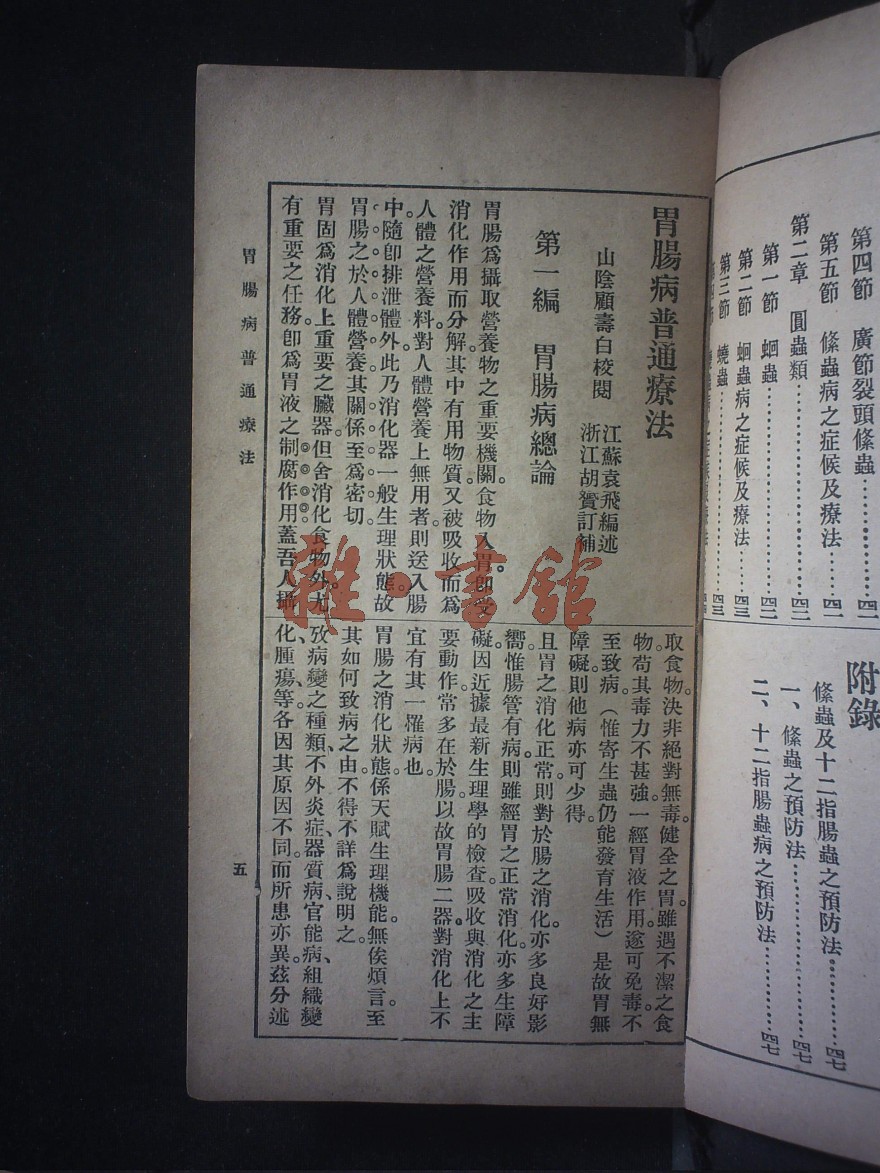 第四節 廣節裂頭條蟲………………四一
第五節 條蟲病之症候及療法………四一
第二章 圓蟲類……………………四二
第一節 蛔蟲………………………四二
第二節 蛔蟲病之症候及療法………四三
第三節 蟯蟲………………………四三
附錄
條蟲及十二指腸蟲之預防法…………四七
一、條蟲之預防法……………………四七
二、十二指腸蟲病之預防法…………四七
胃腸病普通療法
山陰顧壽白校閱
江蘇袁飛編述
浙江胡贇訂補
第一編 胃腸病總論
胃腸爲攝取營養物之重要機關。食物入胃。卽受
消化作用而分解。其中有用物質。又被吸收而爲
人體之營養料。對人體營養上無用者。則送入腸
中。隨卽排泄體外。此乃消化器一般生理狀態。故
胃腸之於人體營養。其關係至爲密切。
胃固爲消化上重要之臟器。但舍消化食物外。尤
有重要之任務。卽爲胃液之制腐作用。蓋吾人攝
取食物。決非絕對無毒。健全之胃。雖遇不潔之食
物。苟其毒力不甚強。一經胃液作用。遂可免毒。不
至致病（惟寄生蟲仍能發育生活）是故胃無
障礙。則他病亦可少得。
且胃之消化正常。則對於腸之消化。亦多良好影
嚮。惟腸管有病。則雖經胃之正常消化。亦多生障
礙。因近據最新生理學的檢查。吸收與消化之主
要動作。常多在於腸。以故胃腸二器。對消化上不
宜有其一罹病也。
胃腸之消化狀態。係天賦生理機能。無俟煩言。至
其如何致病之由。不得不詳爲說明之。
攷病變之種類。不外炎症、器質病、官能病、組織變
化、腫瘍、等。各因其原因不同。而所患亦異。茲分述
胃腸病普通療法
五
雜·書館